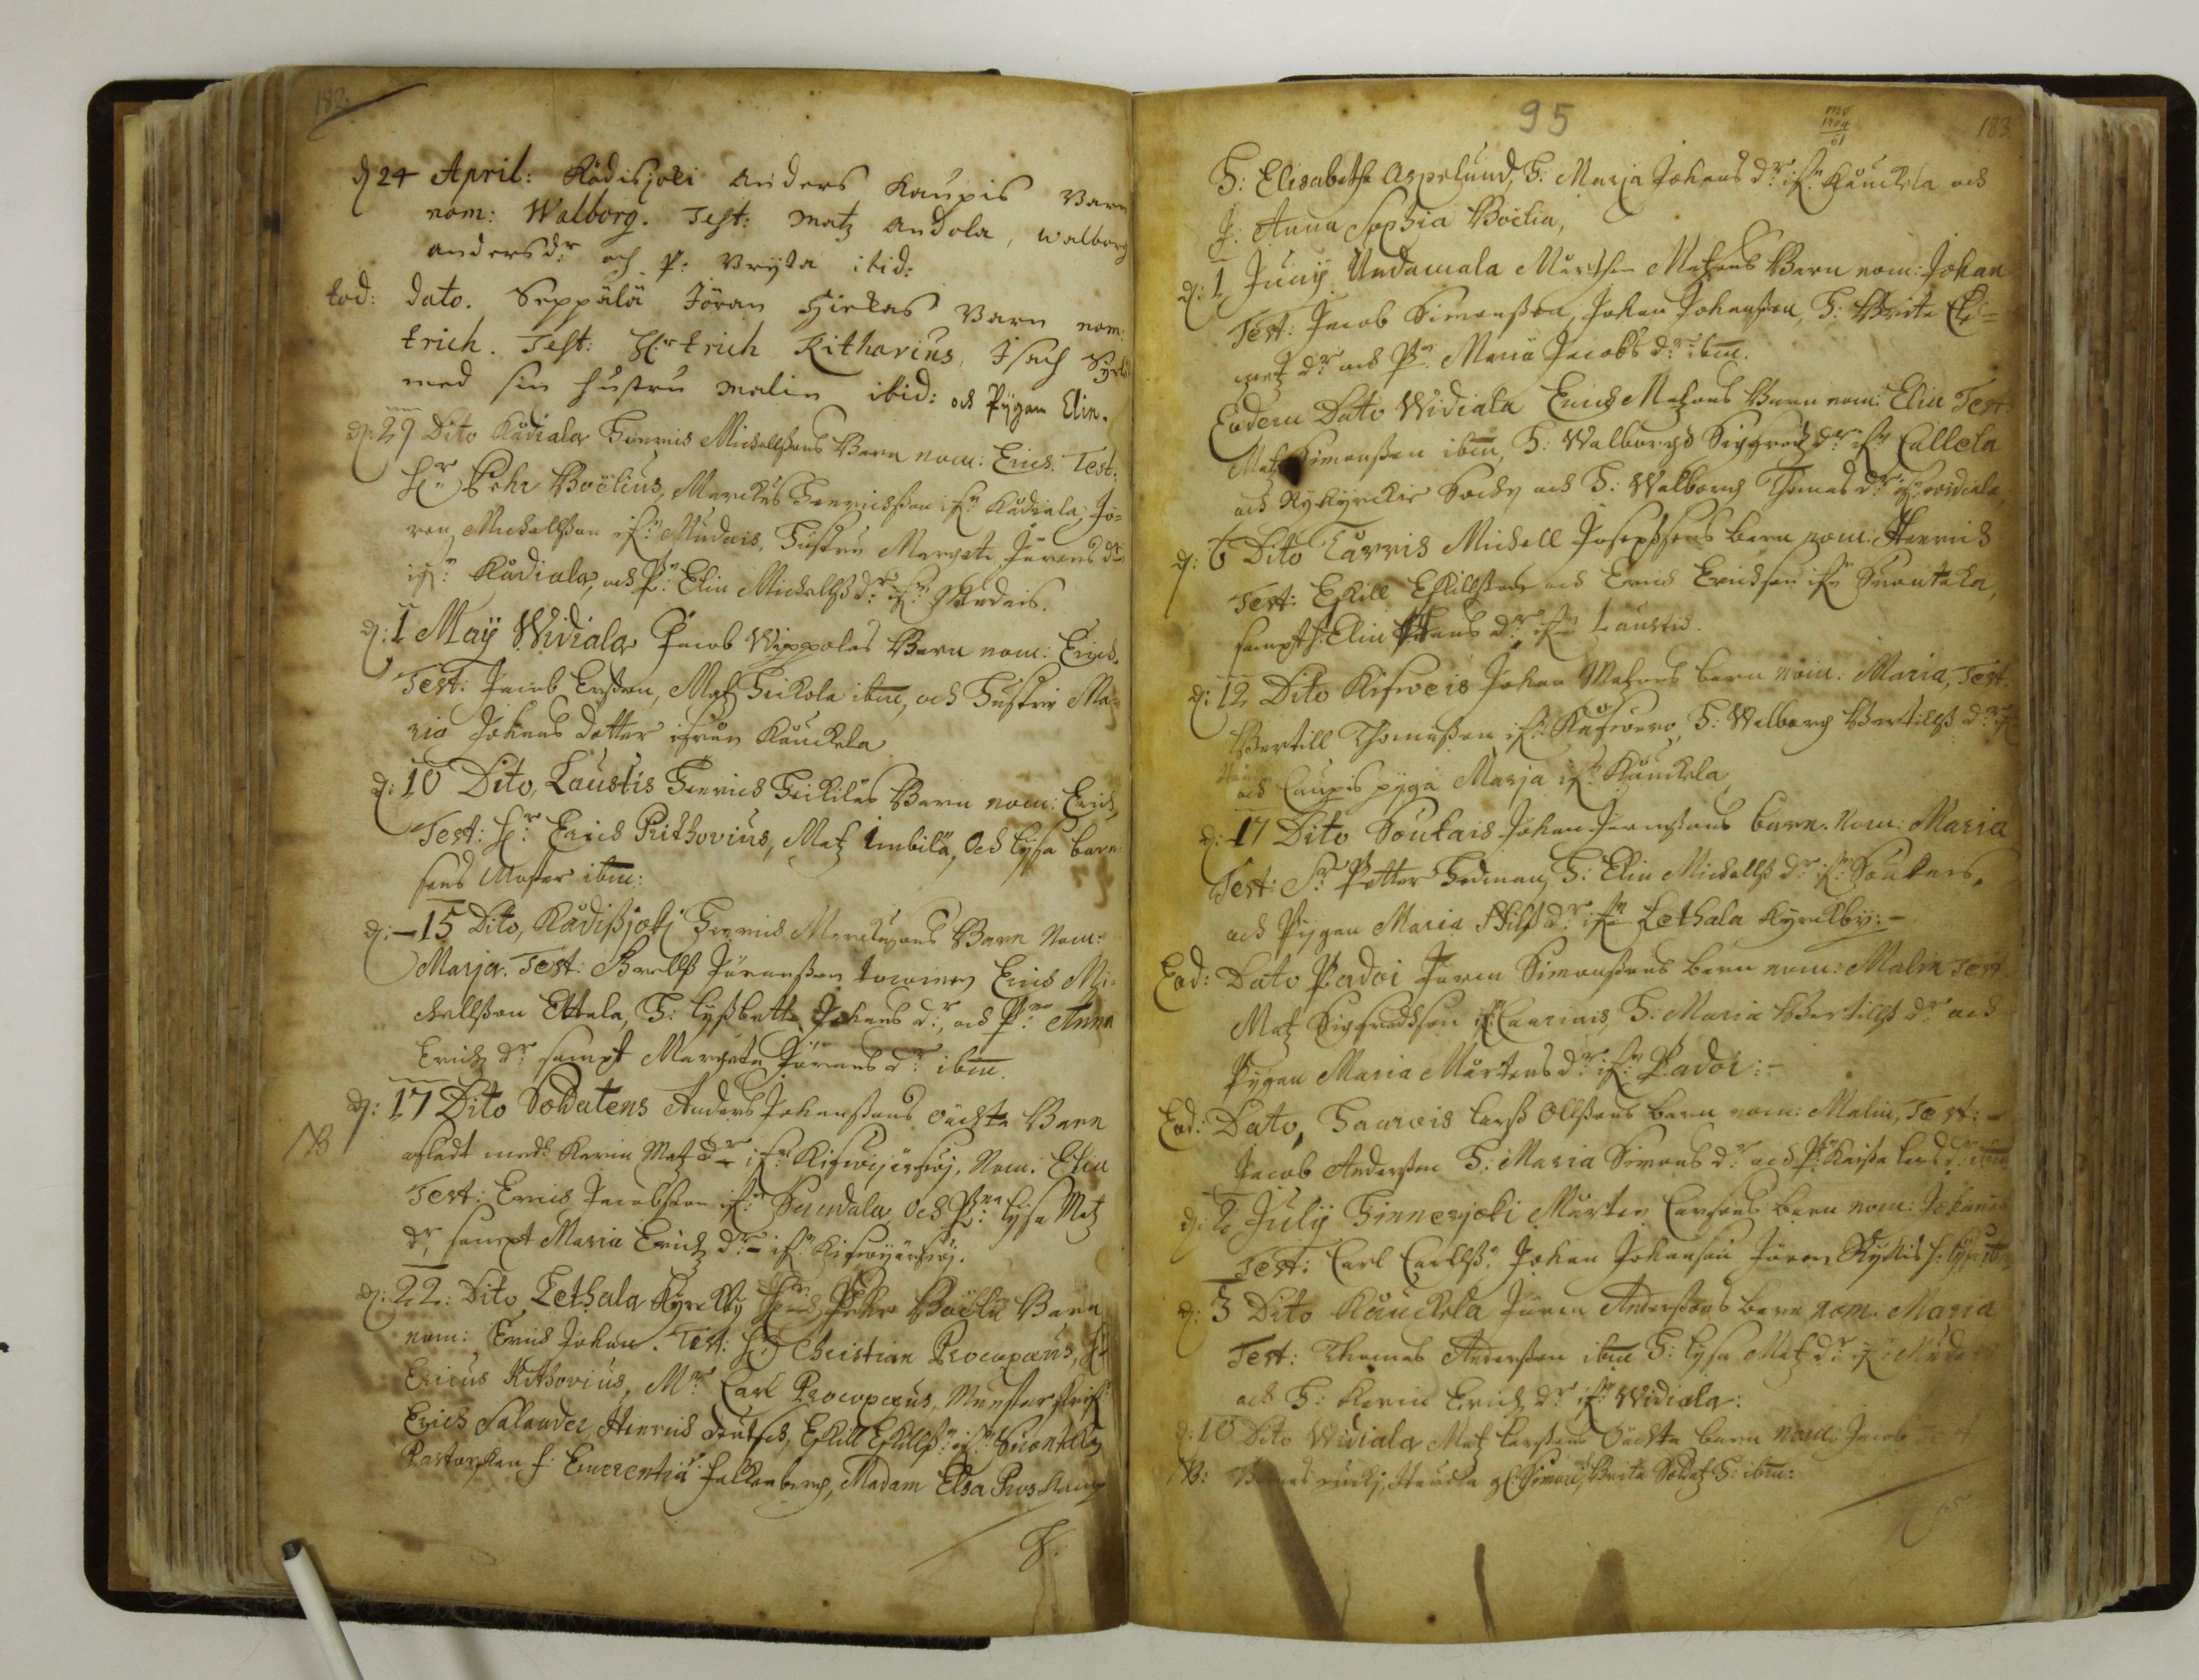 182.
d 24 April: Kådisjoki Anders Kaupis Barn
nom: Walborg. Test: Matz Andola, Walborg
Andersdr och P: Vryta ibid:
Eod: dato. Seppälä Jöran Hickas Barn nom:
Erich. Test: Hr Erich Rithovius, Isach
med sin hustru Malin ibid: och Pÿgan Elin.
d: 29 Dito Kådiala Henrich Michellßons Barn nom: Erich. Test:
Hr Pehr Boëlius, Marckus Henrichßon ifn Kådiala, Jö=
ran Michellßon ifn Mudais, Hustru Margeta Jörens dr
ifn Kådiala, och Pn Elin Michellß dr ifn Mudais.
d: 1 Maÿ Widiala Jacob Wÿppolas Barn nom: Erich.
Test: Jacob Erßon, Matz Heikola ibm, och Hustru Ma=
ria Johans dotter ifrån Kåuckela
d: 10 Dito, Laustis Henrich Heikilas Barn nom: Erich,
Test: Hr Erich Rithovius, Matz Imbilä, och Lÿsa barn
sens Moster ibm:
d: 15 Dito, Kådißjoki Henrich Marckusons Barn Nom:
Marja. Test: Grellß Jöranßon Erich Mi=
chellßon Ettala, H: Lÿßbetta Johans dr, och Pn Anna
Erichz dr sampt Margeta Jörans dr ibm.
d: 17 Dito Soldatens Anders Johanßons oächta Barn
NB
afladt medh Karin Matz dr ifn Kifwijärfwj, Nom: Elin
Test: Erich Jacobßon ifn Seuwala, och Pn Lÿsa Matz
dr, sampt Maria Erichz dr ifn Kifwijärfwj.
d: 22: Dito Lethala Kÿrckbÿ Herr Pehr Boëlii Barn
nom: Erich Johan. Test: Hr Christian Procopæus, Hr
Ericus Rithovius, Mr Carl Procopæus, Munsterskrif:
Erich Salander, Henrich Deutsch, Eskill Eskillß ifn Suontaka
Pastorskan H: Emerentia Falkenberg, Madam Elsa
H.
95
183
H: Elisabetha Aspelund, H: Marja Johans dr ifn Kåuckela och
J: Anna Sophia Boëlia,
d: 1 Junÿ Undamala Mårthen Matzons Barn nom: Johan
Test: Jacob Simonßon, Johan Johanßon, H: Brita Cle=
metz dr och Pn Maria Jacobs dr ibm.
Eodem Dato Widiala Erich Matzons Barn nom: Elin Test:
Matz Simonßon ibm, H: Walborgh Sigfredz dr ifn Callela
och Nÿkÿrckie Sochn och H: Walborg Thomas dr ifn Widiala
d: 6 Dito Tårris Michell Josephßons barn nom: Henrich
Test: Eskill Eskillßon och Erich Erichson ifn Suontaka,
sampt H: Elin dr ifn Laustis.
d: 12 Dito Kifweis Johan Matzons barn nom: Maria, Test:
Bertill Thomaßon ifn, H: Walborg Bertillß dr ifn
och Caupis pÿga Marja ifn Kåuckela
d: 17 Dito Soukais Johan barn. Nom: Maria
Test: Sr Petter Hedman, H: Elin Michellß dr ifn Soukais,
och Pÿgan Maria dr ifn Lethala Kÿrckbÿ: -
Eod: Dato Padoi Jören Simonßons barn nom: Malin Test:
Matz Sigfredhßon ifn Caurinis, H: Maria Bertillß dr och
Pÿgan Maria Mårtens dr ifn Padoi: -
Eod: Dato, Haarois Larß Ollßons barn nom: Malin, Test: -
Jacob Anderßon H: Maria Simons dr och Pn Kaisa Lars dr ibm
d: 2 Julÿ Hinnerjoki Mårten Larßons barn nom: Johannes
Test: Carl Carlß: Johan Johanson Jören
d: 3 Dito Kåuckela Jören Anderßons barn nom: Maria
Test: Thomas Anderßon ibm H: Lÿsa Matz dr ifn Mudais
och H: Karin Erichz dr ifn Widiala:
d: 10 Dito Widiala Matz Larßons Oächta barn Nom: Jacob Test
NB: Brita Soldatz H: ibm: